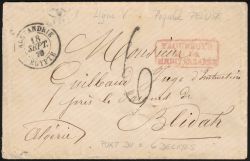 Ligne V Paquebot PELUSE
ALEXANDRIE
18
SEPT.
70
EGYPTE
Monsieur
PAQUEBOTS
DE LA
MEDITERRANEE
Guilbaud Juge d'Instruction
près le
Blidah
Algérie
PORT DU x 6 DECIMES